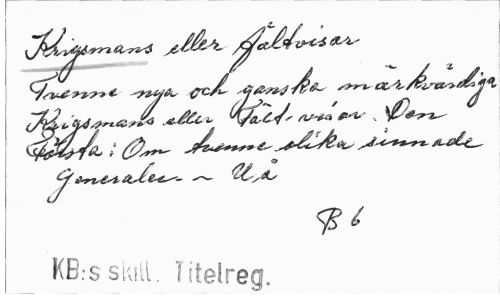 Krigsmans eller fältvisor
Tvenne nya och ganska märkvärdiga
Krigsmans eller Fält-visor. Den
Första: Om tvenne olika sinnade
Generaler. ~ U å
B 6
KB:s skill. Titelreg.